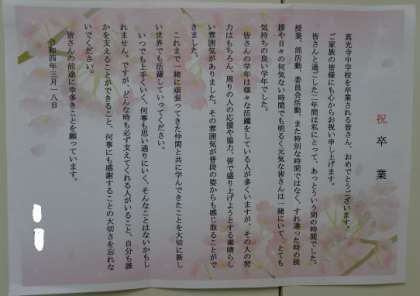 祝　卒　業
真光寺中学校を卒業される皆さん、おめでとうございます。
ご家族の皆様にも心からお祝い申し上げます。
皆さんと過ごした二年間は私にとって、あっという間の時間でした。
授業、部活動、委員会活動、また特別な時間ではなく、すれ違った時の挨
拶や日々の何気ない時間でも明るく元気な皆さんは一緒にいて、とても
気持ちの良い学年でした。
皆さんの学年は様々な活躍をしている人が多くいますが、その人の努
力はもちろん、周りの人の応援や協力、皆で盛り上げようとする素晴らし
い雰囲気がありました。その雰囲気が普段の姿からも感じ取ることがで
きました。
これまで一緒に頑張ってきた仲間と共に学んできたことを大切に新し
い世界でも活躍していってください。
いつでも上手くいく、何事も思い通りにいく、そんなことはないかもし
れません。ですが、どんな時も必ず支えてくれる人がいること、自分も誰
かを支えることができること、何事にも感謝することの大切さを忘れな
いでください。
皆さんの前途に幸多きことを願っています。
令和四年三月一八日